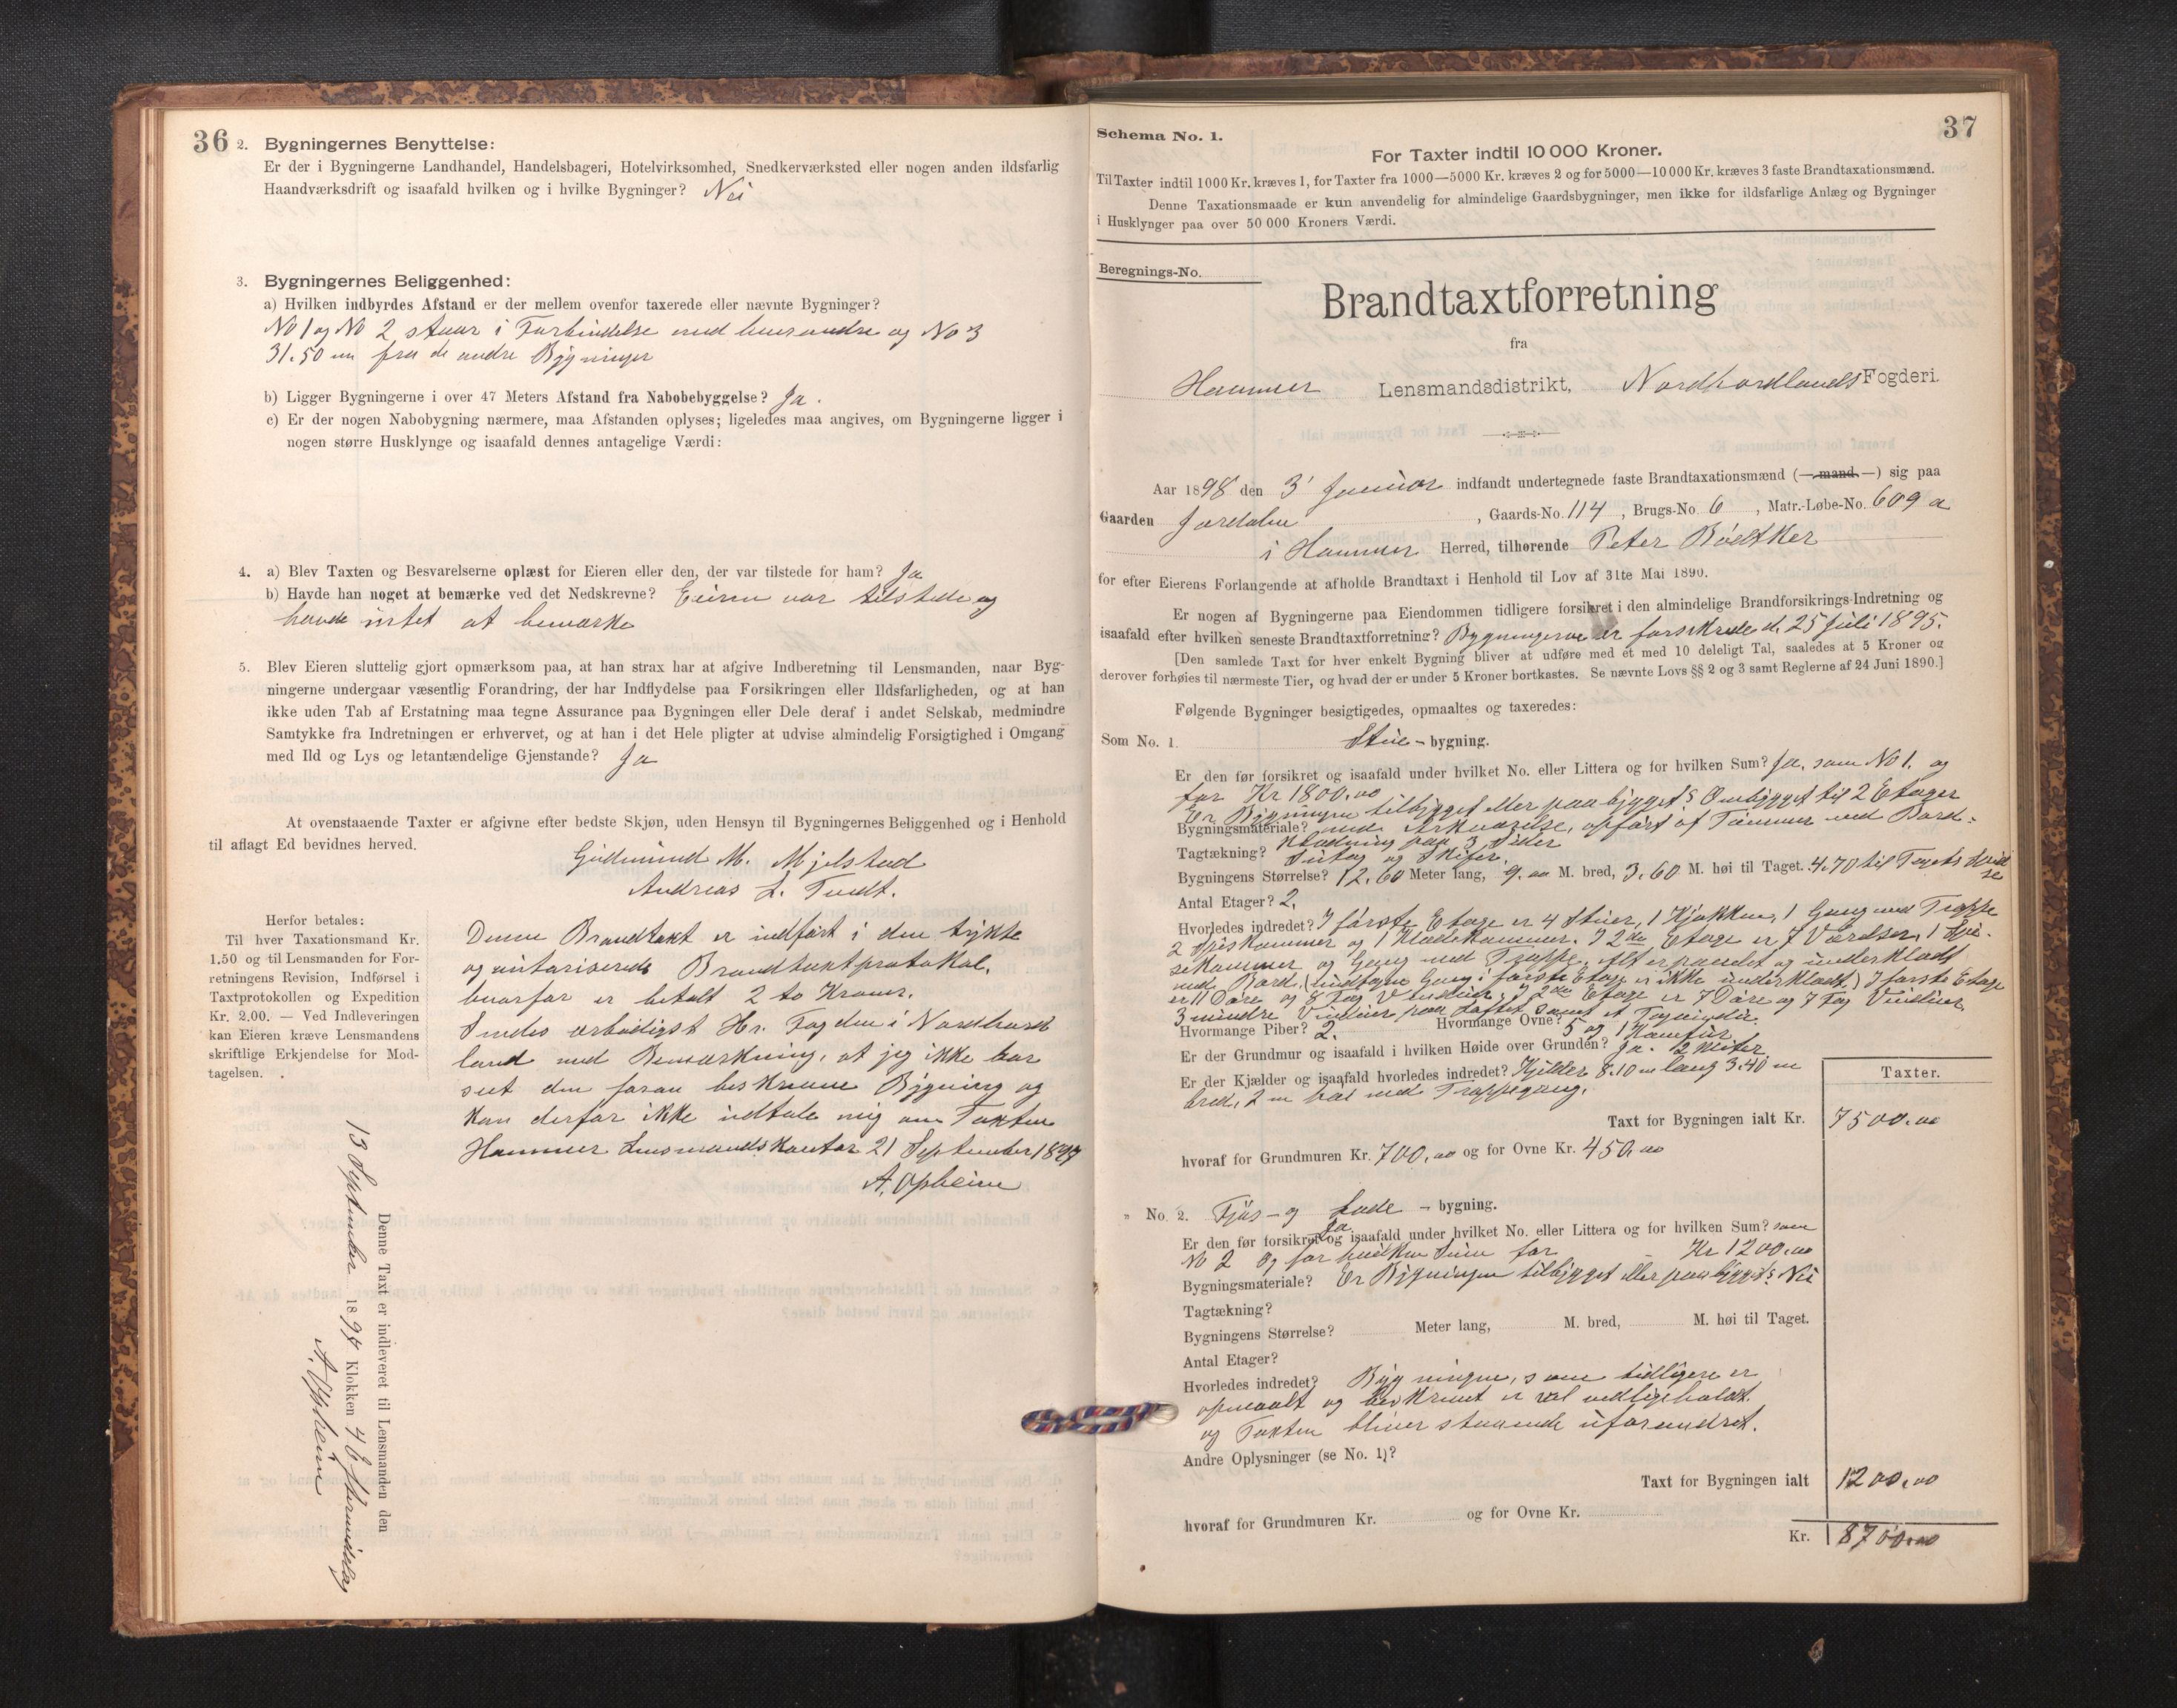 36
2. Bygningernes Benyttelse:
Er der i Bygningerne Landhandel, Handelsbageri, Hotelvirksomhed, Snedkerværksted eller nogen anden ildsfarlig
Haandværksdrift og isaafald hvilken og i hvilke Bygninger? Nei
3. Bygningernes Beliggenhed:
a) Hvilken indbyrdes Afstand er der mellem ovenfor taxerede eller nævnte Bygninger?
No 1 og No 2 staar i Forbindelse med hverandre og No 3
31.50 m fra de andre Bygninger
b) Ligger Bygningerne i over 47 Meters Afstand fra Nabobebyggelse? Ja.
c) Er der nogen Nabobygning nærmere, maa Afstanden oplyses; ligeledes maa angives, om Bygningerne ligger i
nogen større Husklynge og isaafald dennes antagelige Værdi:
4. a) Blev Taxten og Besvarelserne oplæst for Eieren eller den, der var tilstede for ham? Ja
b) Havde han noget at bemærke ved det Nedskrevne? Eieren var tilstede og
havde intet at bemærke
5. Blev Eieren sluttelig gjort opmærksom paa, at han strax har at afgive Indberetning til Lensmanden, naar Byg-
ningerne undergaar væsentlig Forandring, der har Indflydelse paa Forsikringen eller Ildsfarligheden, og at han
ikke uden Tab af Erstatning maa tegne Assurance paa Bygningen eller Dele deraf i andet Selskab, medmindre
Samtykke fra Indretningen er erhvervet, og at han i det Hele pligter at udvise almindelig Forsigtighed i Omgang
med Ild og Lys og letantændelige Gjenstande? Ja
At ovenstaaende Taxter er afgivne efter bedste Skjøn, uden Hensyn til Bygningernes Beliggenhed og i Henhold
til aflagt Ed bevidnes herved.
Gudmund M. Mjelstad
Andreas L. Tuedt.
Herfor betales:
Til hver Taxationsmand Kr.
1.50 og til Lensmanden for For-
retningens Revision, Indførsel i
Taxtprotokollen og Expedition
Kr. 2.00. — Ved Indleveringen
kan Eieren kræve Lensmandens
skriftlige Erkjendelse for Mod-
tagelsen.
Denne Brandtakt er indført i den trykte
og autoriserede Brandtaxtprotokol.
hvorfor er betalt 2 to Kroner.
Sendes ærbødigst Hr. Fogden i Nordhord
land med Bemærkning, at jeg ikke har
seet den foran beskrevne Bygning og
kan derfor ikke udtale mig om Taxten
Hammer Lensmandskontor 21 September 1897
A. Opheim
Denne Taxt er indleveret til Lensmanden den
13 September 1897 Klokken 4 Eftermiddag
A. Opheim
37
Schema No. 1.
For Taxter indtil 10 000 Kroner.
Til Taxter indtil 1000 Kr. kræves 1, for Taxter fra 1000—5000 Kr. kræves 2 og for 5000—10 000 Kr. kræves 3 faste Brandtaxationsmænd.
Denne Taxationsmaade er kun anvendelig for almindelige Gaardsbygninger, men ikke for ildsfarlige Anlæg og Bygninger
i Husklynger paa over 50 000 Kroners Værdi.
Beregnings-No.
Brandtaxtforretning
fra
Hammer Lensmandsdistrikt, Nordhordlands Fogderi.
Aar 1898 den 3' Januar indfandt undertegnede faste Brandtaxationsmænd (—mand—) sig paa
Gaarden Jordalen, Gaards-No. 114, Brugs-No. 6, Matr.-Løbe-No. 609 a
i Hammer Herred, tilhørende Peter Bödtker
for efter Eierens Forlangende at afholde Brandtaxt i Henhold til Lov af 31te Mai 1890.
Er nogen af Bygningerne paa Eiendommen tidligere forsikret i den almindelige Brandforsikrings-Indretning og
isaafald efter hvilken seneste Brandtaxtforretning? Bygningerne er forsikrede d. 25 Juli 1895.
[Den samlede Taxt for hver enkelt Bygning bliver at udføre med et med 10 deleligt Tal, saaledes at 5 Kroner og
derover forhøies til nærmeste Tier, og hvad der er under 5 Kroner bortkastes. Se nævnte Lovs §§ 2 og 3 samt Reglerne af 24 Juni 1890.]
Følgende Bygninger besigtigedes, opmaaltes og taxeredes:
Som No. 1. Stue-bygning.
Er den før forsikret og isaafald under hvilket No. eller Littera og for hvilken Sum? Ja, som No 1. og
for Kr 1800.00
Er Bygningen tilbygget eller paabygget? Ombygget til 2 Etager
Bygningsmateriale? med Arkværelse, opført af Tømmer med Bord-
klædning paa 3 Sider
Tagtækning? Sutag og Skifer.
Bygningens Størrelse? 12.60 Meter lang, 9.00 M. bred, 3.60 M. høi til Taget. 4.70 til Tagets
Antal Etager? 2.
Hvorledes indredet? I første Etage er 4 Stuer, 1 Kjøkken, 1 Gang med Trappe
2 Spiskammer og 1 Klædekammer. I 2den Etage er 7 Værelser, 1 Spi-
sekammer og Gang med Trappe. Alt er panelet og underklædt
med Bord, (undtagen Gang i første Etage er ikke underklædt.) I første Etage
er 11 Döre og 8 Fag Vinduer, I 2den Etage er 7 Döre og 7 Fag Vinduer,
3 mindre Vinduer paa Loftet samt et Tagvindu.
Hvormange Piber? 2. Hvormange Ovne? 5 og 1 Komfur.
Er der Grundmur og isaafald i hvilken Høide over Grunden? Ja. 2 Meter
Er der Kjælder og isaafald hvorledes indredet? Kjelder 8.10 m lang 3.40 m
bred, 2 m høi med Trappegang.
Taxter.
Taxt for Bygningen ialt Kr. 7500.00
hvoraf for Grundmuren Kr. 700,00 og for Ovne Kr. 450,00
" No. 2. Fjøs- og Lade-bygning.
Er den før forsikret og isaafald under hvilket No. eller Littera og for hvilken Sum? Ja som
No 2 og for hvilken Sum for Kr 1200.00
Bygningsmateriale? Er Bygningen tilbygget eller paabygget? Nei
Tagtækning?
Bygningens Størrelse? Meter lang, M. bred, M. høi til Taget.
Antal Etager?
Hvorledes indredet? Bygningen, som tidligere er
opmaalt og beskrevet er vel vedligeholdt.
og Taxten bliver staaende uforandret.
Andre Oplysninger (se No. 1)?
Taxt for Bygningen ialt 1200.00
hvoraf for Grundmuren Kr. og for Ovne Kr.
Kr. 8700.00